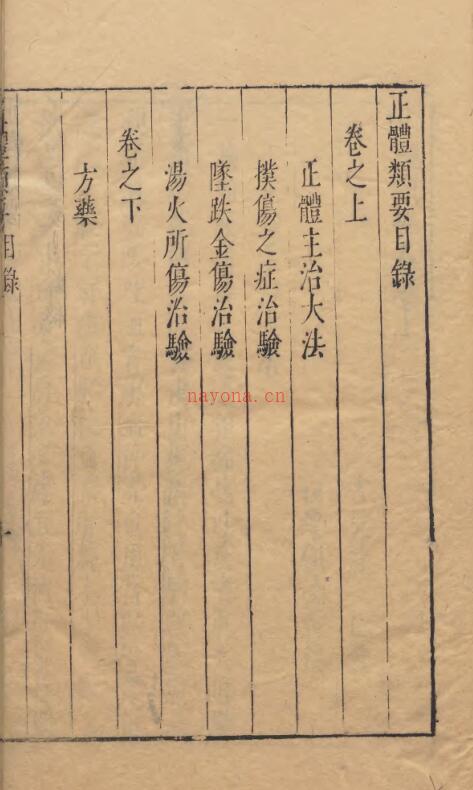 正體類要目錄
卷之上
正體主治大法
撲傷之症治驗
墜跌金傷治驗
湯火所傷治驗
卷之下
方藥
目錄
nayona.cn